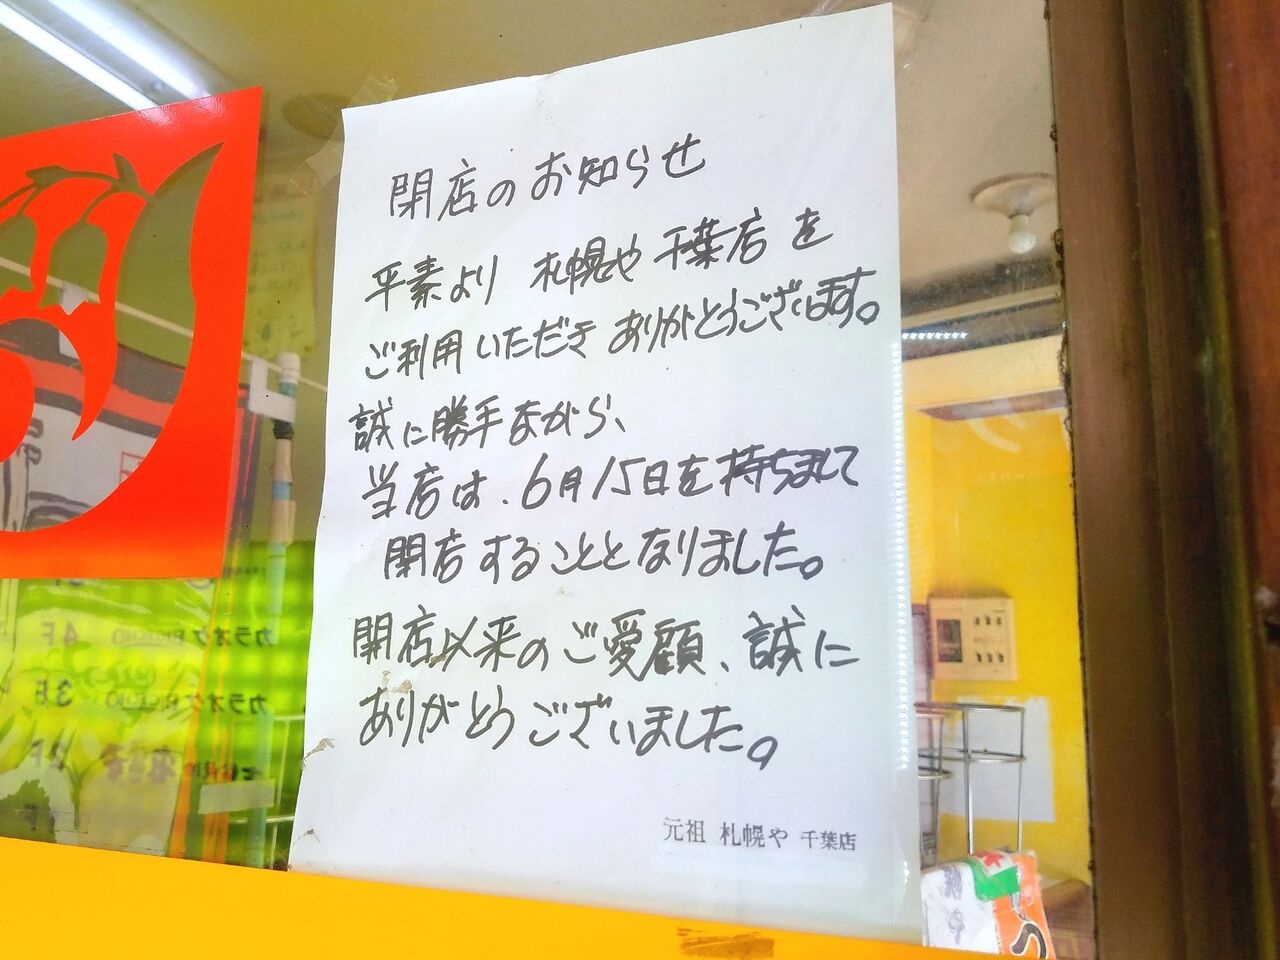 閉店のお知らせ
平素より 札幌や 千葉店を
ご利用いただき ありがとうございます。
誠に勝手ながら、
当店は、6月15日を持ちまして
閉店することとなりました。
開店以来のご愛顧、誠に
ありがとうございました。
元祖 札幌や 千葉店
カラオケ 4F
カラオケ 3F
2F